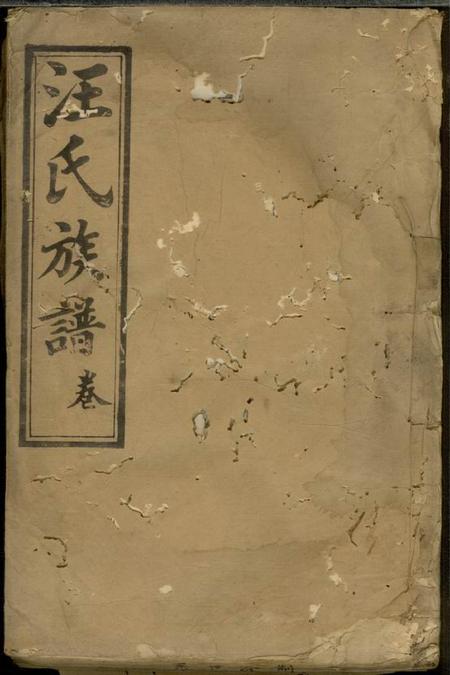 汪氏族譜卷